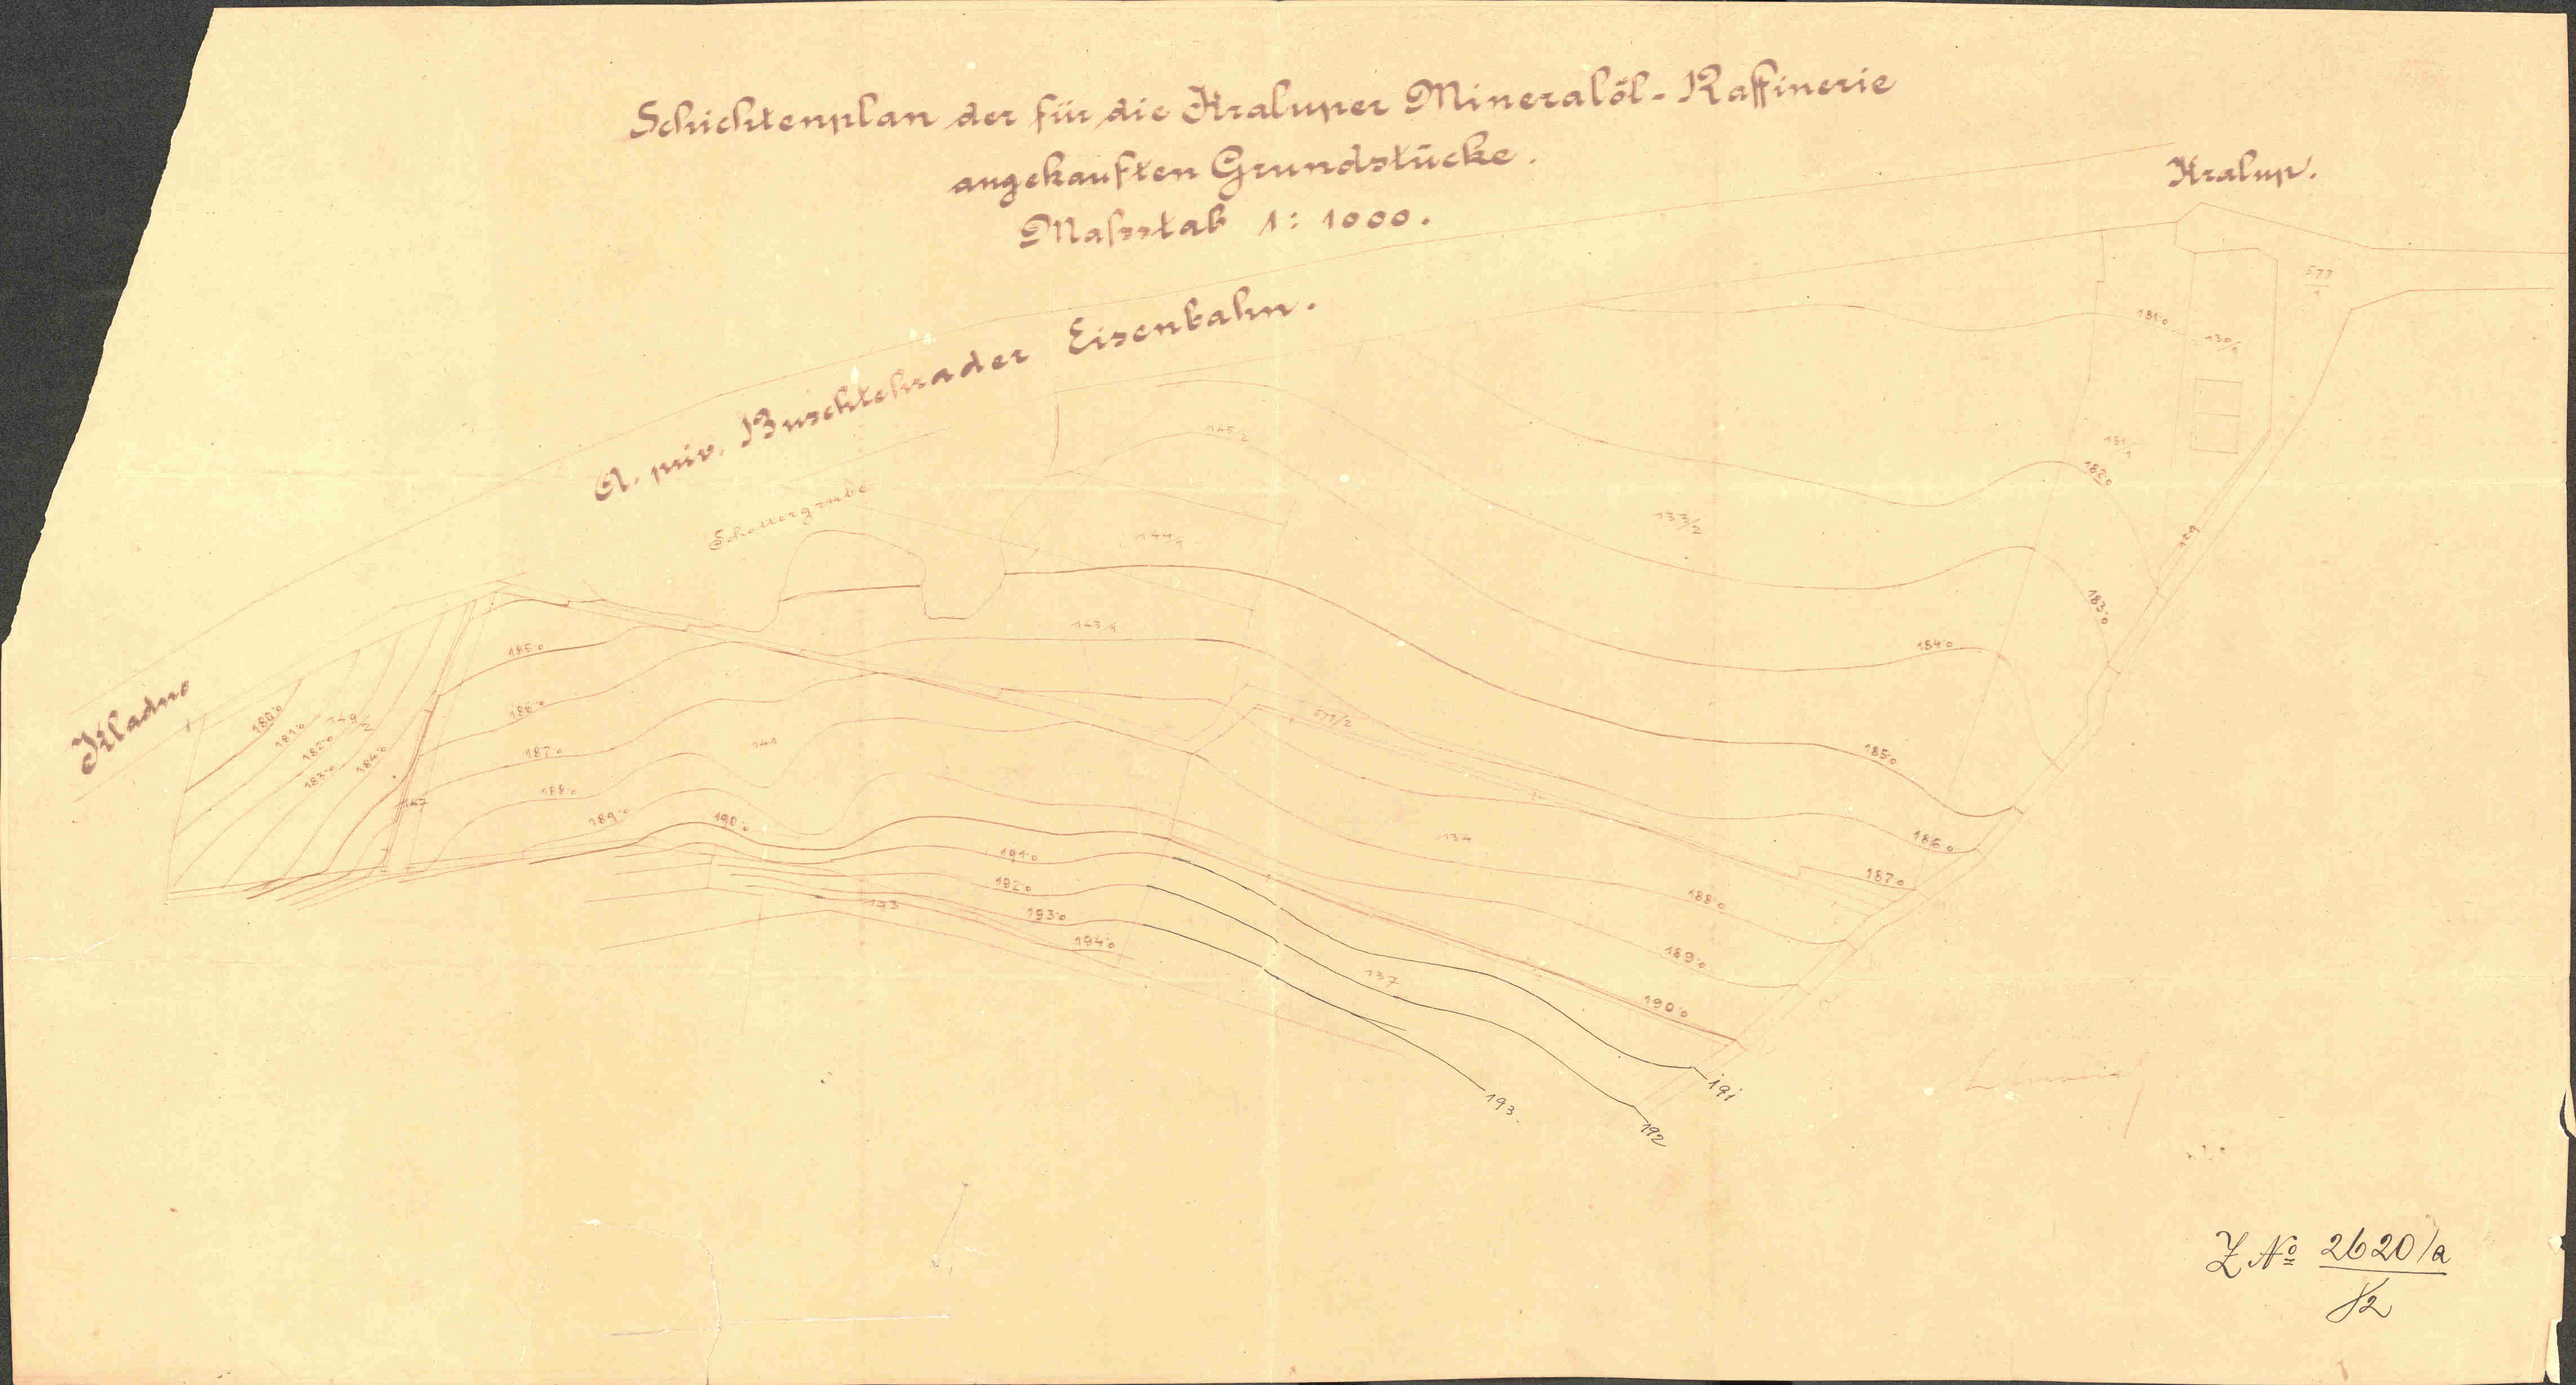 Schichtenplan der für die Kraluper Mineralöl-Raffinerie
angekauften Grundstücke.
Maßstab 1:1000.
Kralup.
A. priv. Buschtehrader Eisenbahn.
Schottergrube
Kladno
577
1
181·0
130/1
131/1
182·0
145/2
133/2
129
144/1
183·0
143/1
184·0
185·0
186·0
180·0
181·0
149/2
182·0
183·0
184·0
577/2
141
187·0
185·0
188·0
147
189·0
190·0
134
186·0
191·0
187·0
192·0
188·0
193
193·0
194·0
189·0
137
190·0
191
193.
192
Z № 2620/a